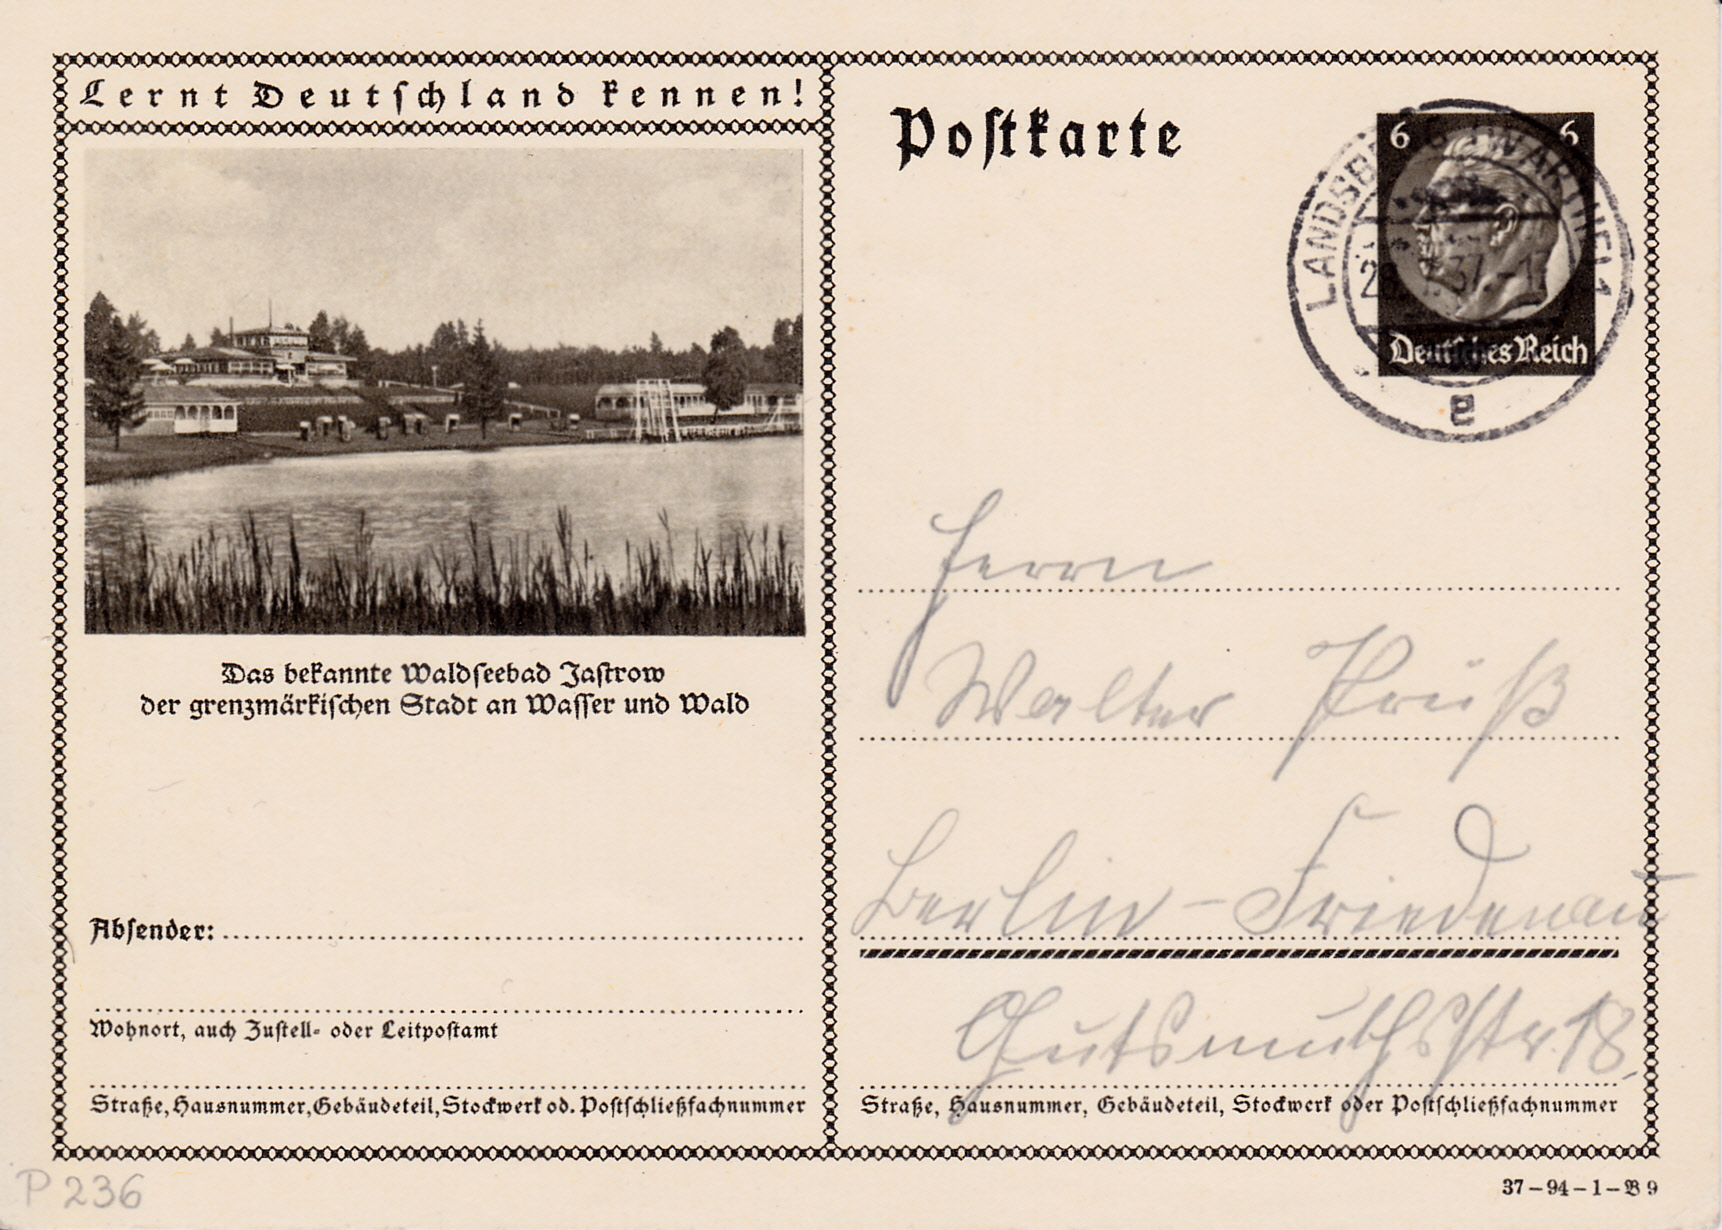 Lernt Deutschland kennen!
Das bekannte Waldseebad Jastrow
der grenzmärkischen Stadt an Wasser und Wald
Absender:
Wohnort, auch Zustell- oder Leitpostamt
Straße, Hausnummer, Gebäudeteil, Stockwerk od. Postschließfachnummer
P 236
Postkarte
6 6
Deutsches Reich
e
Herrn
Walter Prüß
Berlin-Friedenau
Gutsmuthsstr. 18.
Straße, Hausnummer, Gebäudeteil, Stockwerk oder Postschließfachnummer
37-94-1-B 9